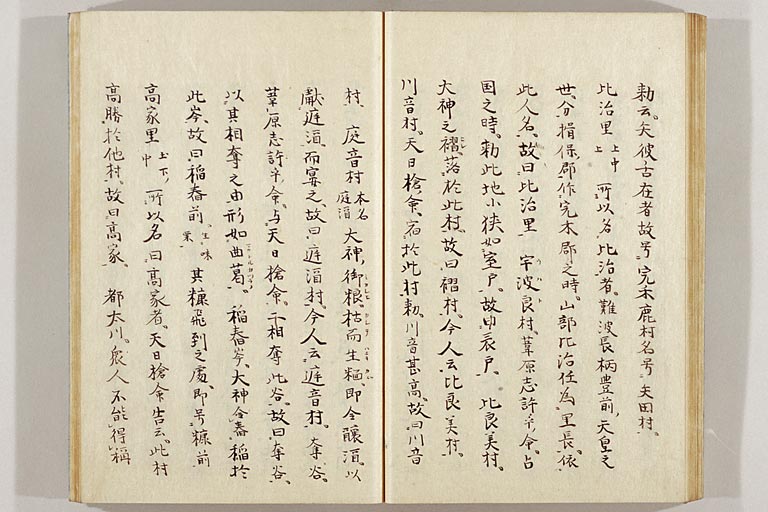 勅云。矢彼舌在者。故号宍禾鹿。村名号矢田村。
比治里 上中上 所以名比治者。難波長柄豊前天皇之
世。分揖保郡作宍禾郡之時。山部比治任為里長。依
此人名。故曰比治里 宇波良村。葦原志許乎命。占
国之時。勅此地小狭如室戸。故曰表戸。 比良美村。
大神之褶。落於此村。故曰褶村。今人云比良美村。
川音村。天日槍命。宿於此村。勅。川音甚高。故曰川音
村、庭音村 本名庭酒 大神、御粮。枯而生糆。即令釀酒。以
獻庭酒。而宴之。故曰庭酒村。今人云庭音村。奪谷。
葦原志許乎命。与天日槍命。二相奪此谷。故曰奪谷。
以其相奪之由。形如曲葛。 稲舂岑、大神令舂稲於
此岑。故曰稲舂前。 其糠飛到之處。即号糠前
高家里 上下中 所以名曰高家者。天日槍命告云。此村
高勝於他村。故曰高家。 都太川。衆人不能得稱